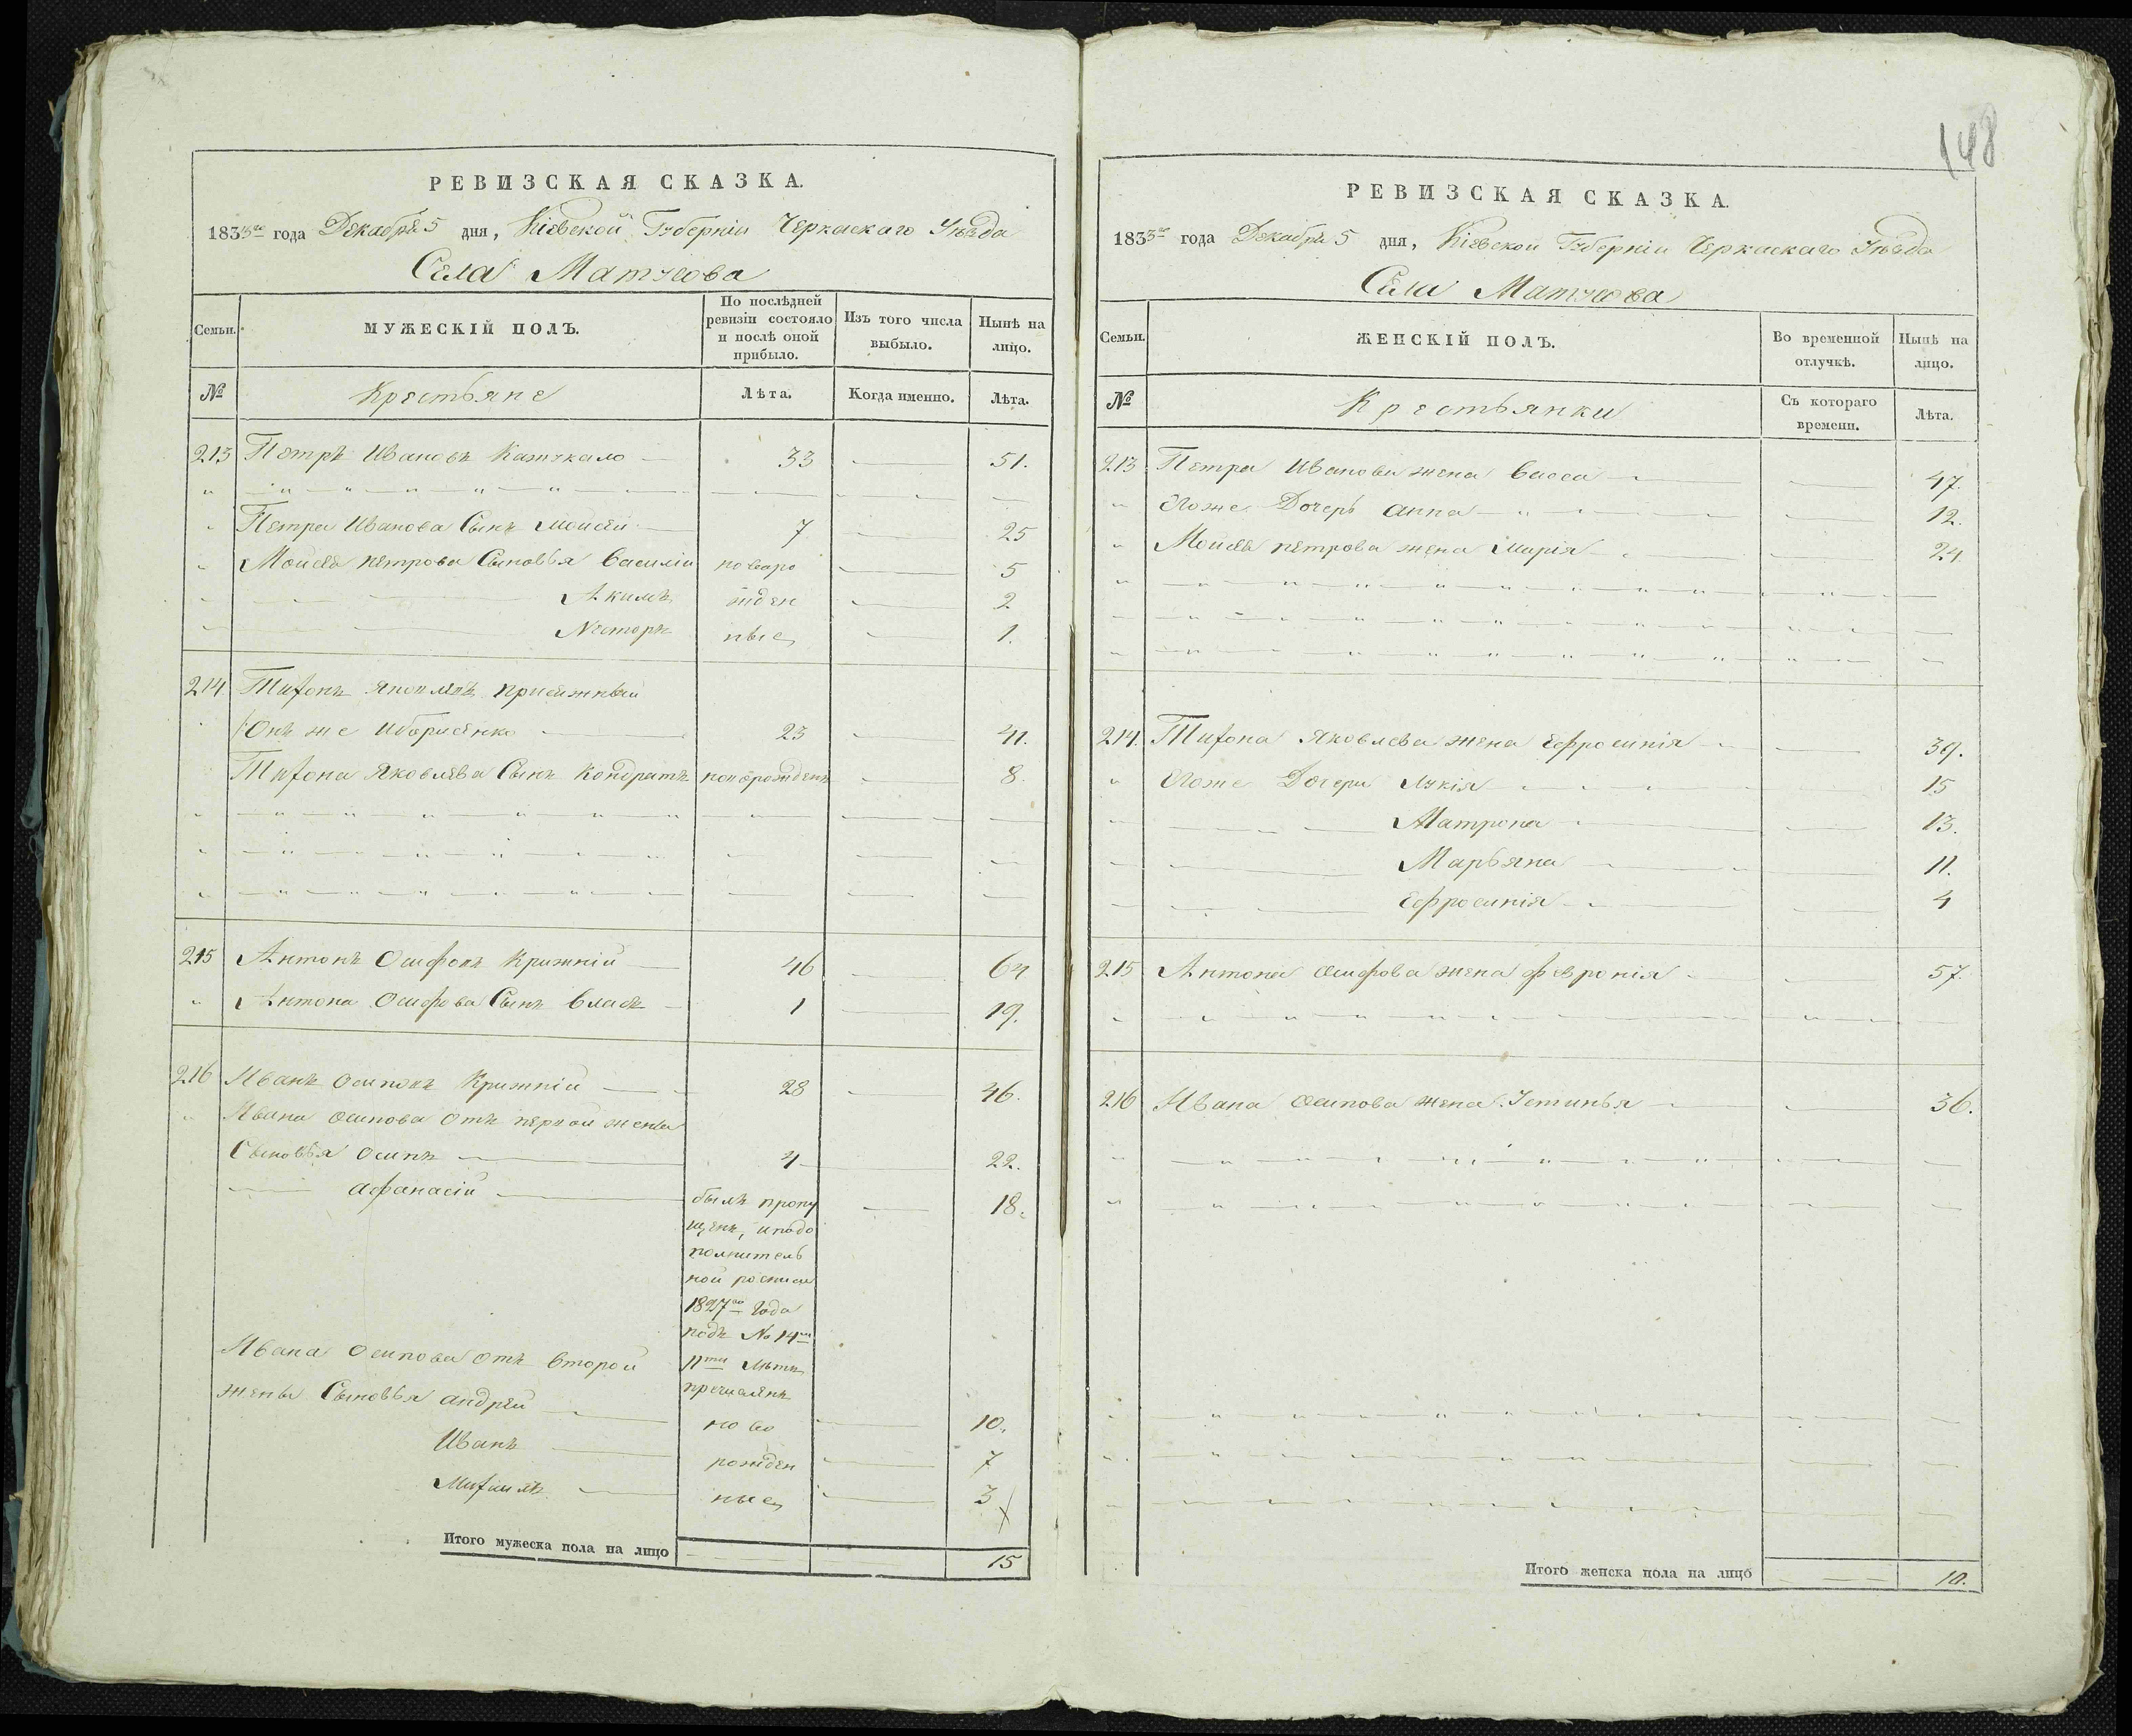 148
РЕВИЗСКАЯ СКАЗКА.
1833го года Декабря 5 дня, Кіевской Губерніи Черкаскаго Уѣзда
Села Матусова
Семьи. МУЖЕСКІЙ ПОЛЪ. По послѣдней ревизіи состояло и послѣ оной прибыло. Изъ того числа выбыло. Нынѣ на лицо.
№ Крестьяне Лѣта. Когда именно. Лѣта.
213 Петръ Ивановъ 33 51.
Петра Ивановa Сынъ Моисей 7 25
Моисея петрова Сыновья Василій новоро 5
Акимъ жден 2
Несторъ ные 1.
214 Тихонъ Яковлевъ
Онъ же и Борисенко 23 41.
Тихона Яковлева Сынъ Кондратъ новорожденъ 8.
215 Антонъ Осифовъ Крижній 46 64
Антона Осифова Сынъ Власъ 1 19.
216 Иванъ Осиповъ Крижній 28 46.
Ивана Осипова отъ первой жены
Сыновья Осипъ 4 22.
Афанасій былъ пропу 18.
щенъ, и подо
полнитель
ной росписи
1827го Года
подъ № 14м
Ивана Осипова отъ второй лѣтъ
жены Сыновья Андрей ново 10.
Иванъ рожден 7
Михаилъ ные 3
Итого мужеска пола на лицо 15
РЕВИЗСКАЯ СКАЗКА.
1833го года Декабря 5 дня, Кіевской Губерніи Черкаскаго Уѣзда
Села Матусова
Семьи. ЖЕНСКІЙ ПОЛЪ. Во временной отлучкѣ. Нынѣ на лицо.
№ Крестьянки Съ котораго времени. Лѣта.
213 Петра Иванова жена Васса 47.
Егоже Дочерь Анна 12.
Моисея петрова жена Марія 24
214. Тихона Яковлева жена Ефросинія 39.
Егоже Дочери Лукія 15
Матрона 13.
Марьяна 11.
Ефросинія 4
215 Антона Осифова жена Февронія 57.
216 Ивана Осипова жена Устинья 36.
Итого женска пола на лицо 10.